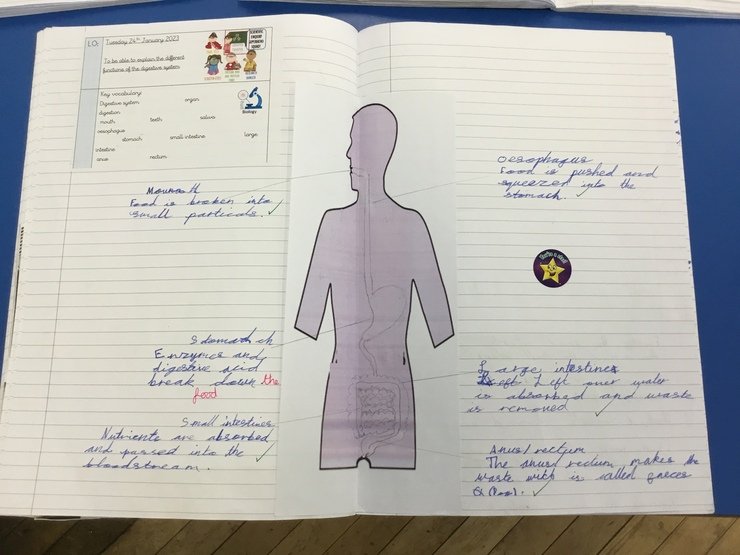 LO:
Tuesday 24th January 2023
To be able to explain the different
functions of the digestive system
Key vocabulary:
Digestive system organ
digestion
mouth teeth saliva
oesophagus
stomach small intestine large
intestine
anus rectum
Biology
Mououth
Food is broken into
small particals.
Stomach ch
Enzymes and
digestive acid
break down the
food
Small intestines
Nutrients are absorbed
and passed into the
bloodstream.
oesophagus
Food is pushed and
squeezes into the
stomach.
Large intestines
Left over water
is absorbed and waste
is removed
Anus/rectum
The anus/rectum makes the
waste wich is called faeces
(Poo).